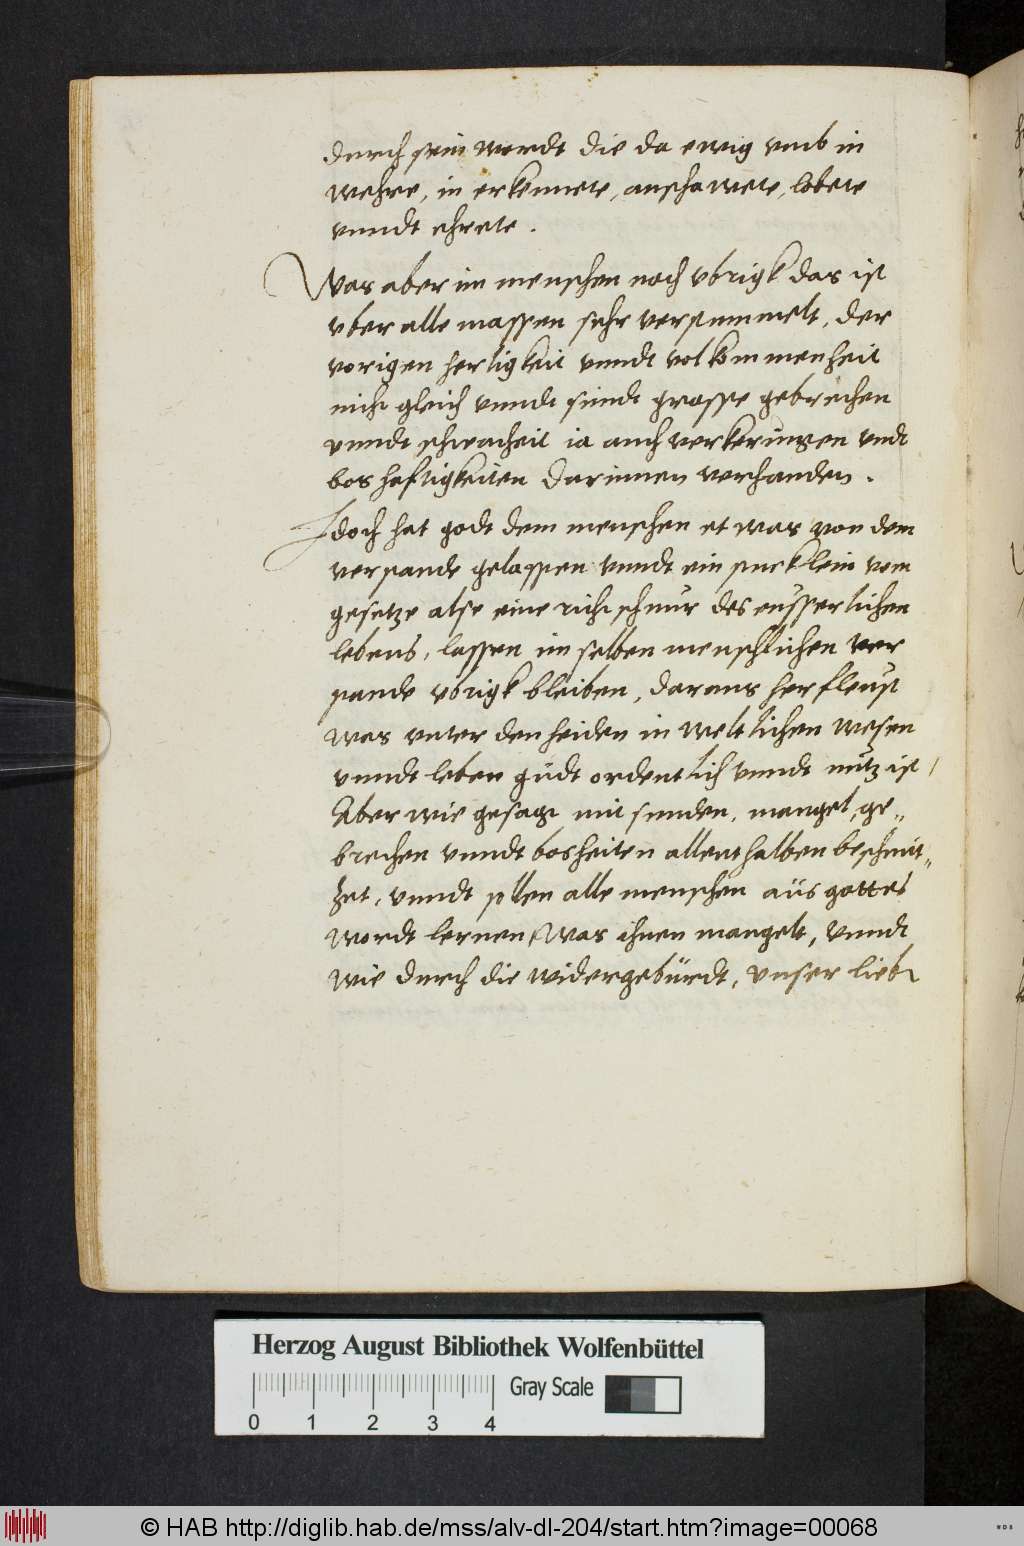 durch sein wordt die da ewig vmb in
wehre, in erkennete, anschawete, lobete
vnndt ehrete.
Was aber im menschen noch vbrigk das ist
vber alle massen sehr verstummelt, der
vorigen herligkeit vnndt volkommenheit
nicht gleich vnndt sündt grosse gebrechen
vnndt schwacheit ia auch verkerungen vndt
boshafftigkeiten darinnen verhanden.
Jdoch hat godt dem menschen etwas von dem
verstande gelassen vnndt ein stucklein vom
gesetze alse eine richtschnur des eusserlichen
lebens, lassen im selben menschlichen ver
stande vbrigk bleiben, daraus herfleust
was vnter den heiden in weltlichen wesen
vnndt leben gudt ordentlich vnndt nutz ist /
Aber wie gesagt mit sunden, mangel, ge„
brechen vnndt bosheiten allenthalben beschmit„
zet, vnndt sollen alle menschen aus gottes
wordt lernen, was ihnen mangelt, vnndt
wie durch die widergebürdt, vnser lieber
Herzog August Bibliothek Wolfenbüttel
Gray Scale
0 1 2 3 4
© HAB http://diglib.hab.de/mss/alv-dl-204/start.htm?image=00068